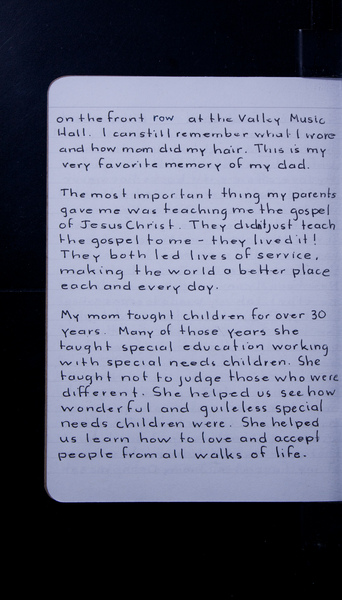 on the front row at the Valley Music
Hall. I can still remember what I wore
and how mom did my hair. This is my
very favorite memory of my dad.
The most important thing my parents
gave me was teaching me the gospel
of Jesus Christ. They didn't just teach
the gospel to me - they lived it!
They both led lives of service,
making the world a better place
each and every day.
My mom taught children for over 30
years. Many of those years she
taught special education working
with special needs children. She
taught not to judge those who were
different. She helped us see how
wonderful and guileless special
needs children were. She helped
us learn how to love and accept
people from all walks of life.